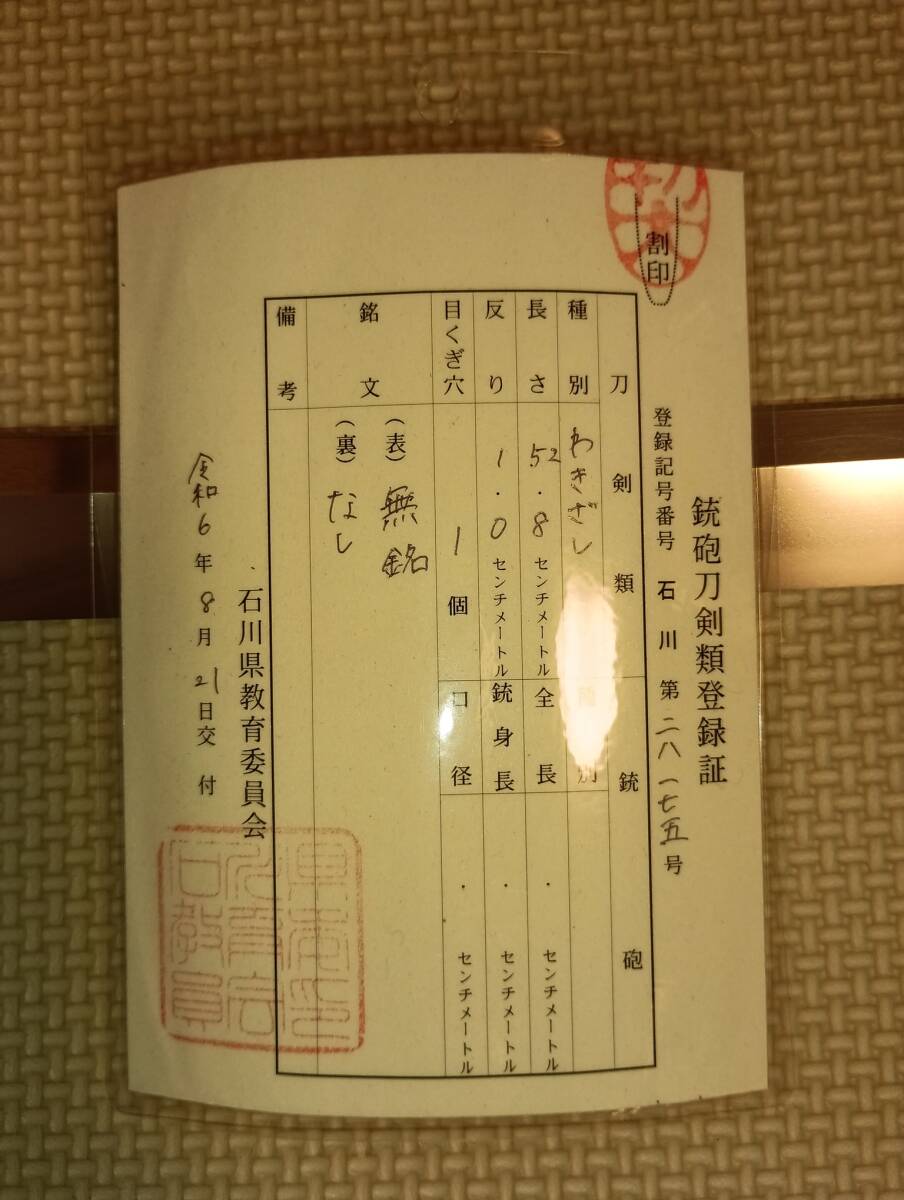 銃砲刀剣類登録証
登録記号番号 石川 第 二八一七五 号
割印
刀剣類
銃砲
種別 わきざし
種別
長さ 52.8センチメートル
全長 ・ センチメートル
反り 1.0センチメートル
銃身長 ・ センチメートル
目くぎ穴 1個
口径 ・ センチメートル
銘文
(表) 無銘
(裏) なし
備考
石川県教育委員会
令和6年8月21日交付